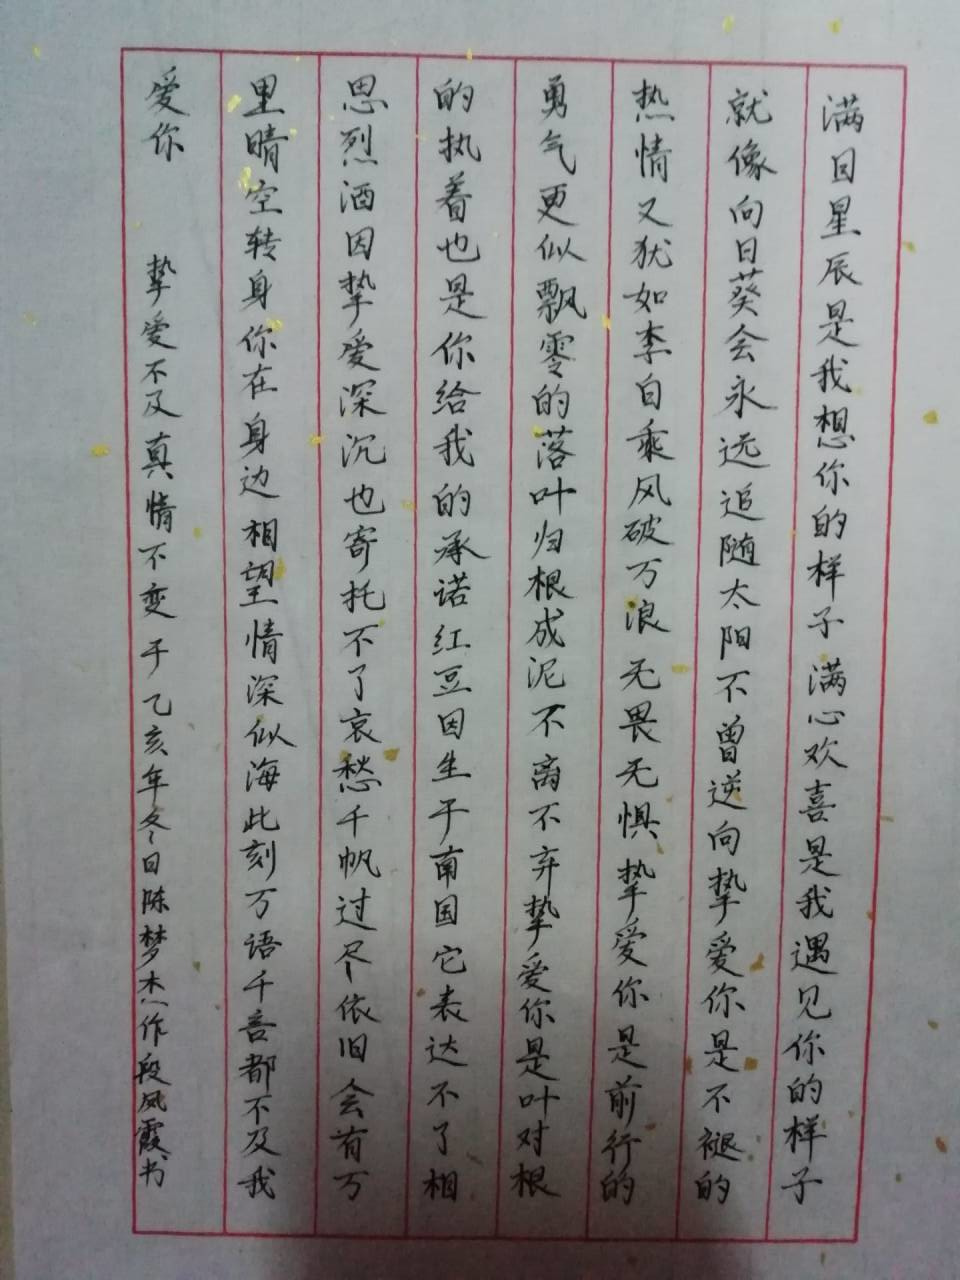 满目星辰是我想你的样子满心欢喜是我遇见你的样子
就像向日葵会永远追随太阳不曾逆向挚爱你是不褪的
热情又犹如李白乘风破万浪无畏无惧挚爱你是前行的
勇气更似飘零的落叶归根成泥不离不弃挚爱你是叶对根
的执着也是你给我的承诺红豆因生于南国它表达不了相
思烈酒因挚爱深沉也寄托不了哀愁千帆过尽依旧会有万
里晴空转身你在身边相望情深似海此刻万语千言都不及我
爱你 挚爱不及真情不变于乙亥年冬日陈梦杰作段凤霞书